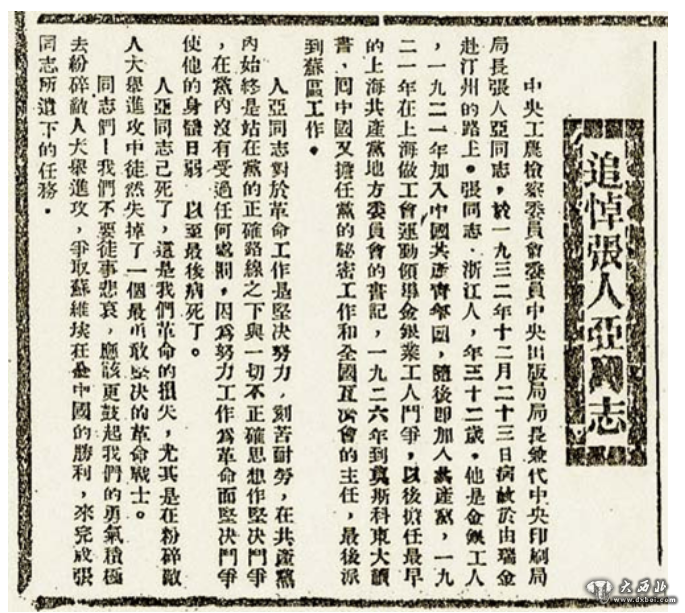 追悼張人亞同志
中央工農檢察委員會委員中央出版局局長兼代中央印刷局
局長張人亞同志，於一九三二年十二月二十三日病故於由瑞金
赴汀州的路上。張同志，浙江人，年三十二歲。他是金銀工人
，一九二一年加入中國共產青年團，隨後即加入共產黨，一九
二一年在上海做工會運動領導金銀業工人鬥爭，以後擔任最早
的上海共產黨地方委員會的書記，一九二六年到莫斯科東大讀
書，回中國又擔任黨的秘密工作和全國互濟會的主任，最後派
到蘇區工作。
人亞同志對於革命工作是堅决努力，刻苦耐勞，在共產黨
內始終是站在黨的正確路線之下與一切不正確思想作堅决鬥爭
，在黨內沒有受過任何處罰，因爲努力工作爲革命而堅决鬥爭
使他的身體日弱　以至最後病死了。
人亞同志已死了，這是我們革命的損失，尤其是在粉碎敵
人大舉進攻中徒然失掉了一個最勇敢堅决的革命戰士。
同志們！我們不要徒事悲哀，應該更鼓起我們的勇氣積極
去粉碎敵人大舉進攻，爭取蘇維埃在全中國的勝利，來完成張
同志所遺下的任務。
大西北
www.dxbei.com